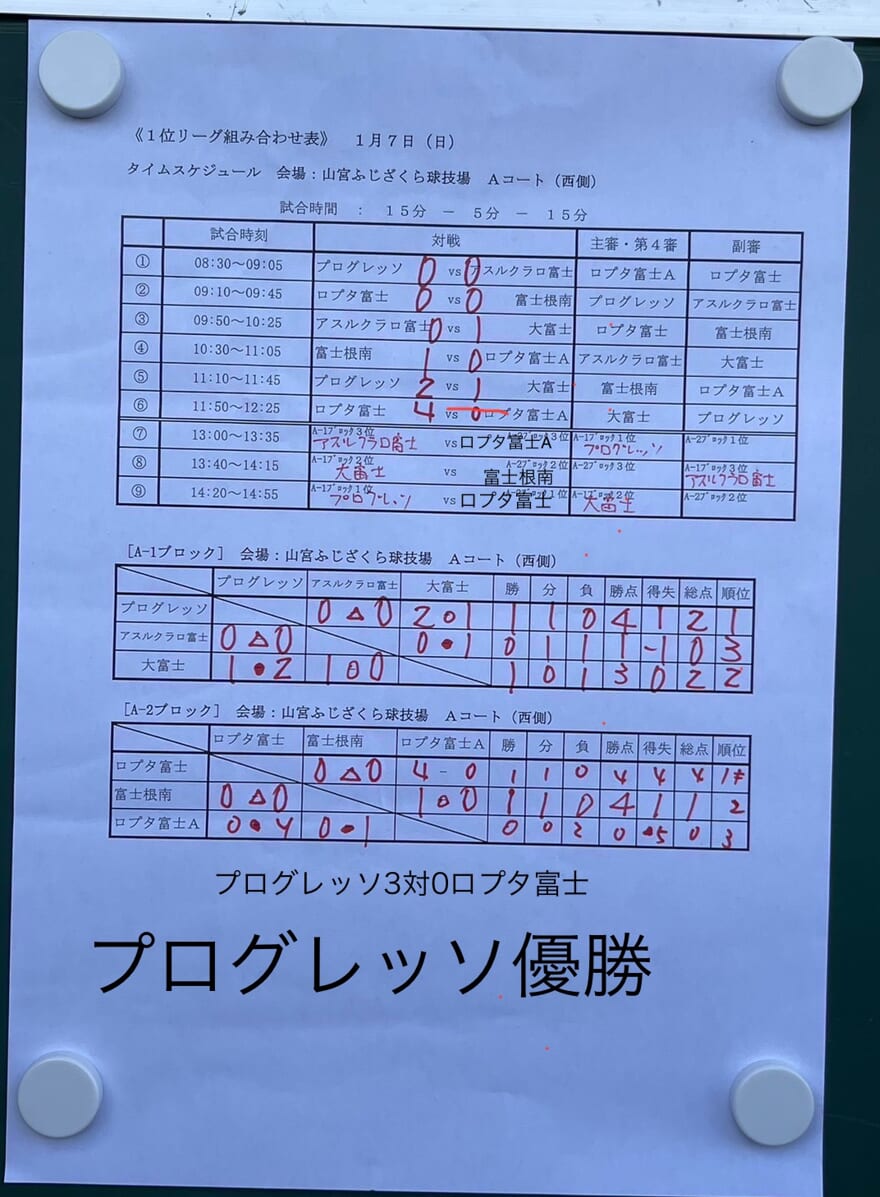 《1位リーグ組み合わせ表》 1月7日(日)
タイムスケジュール 会場:山宮ふじざくら球技場 Aコート(西側)
試合時間 : 15分 － 5分 － 15分
試合時刻 対戦 主審・第4審 副審
① 08:30～09:05 プログレッソ 0 vs 0 アスルクラロ富士 ロプタ富士A ロプタ富士
② 09:10～09:45 ロプタ富士 0 vs 0 富士根南 プログレッソ アスルクラロ富士
③ 09:50～10:25 アスルクラロ富士 0 vs 1 大富士 ロプタ富士 富士根南
④ 10:30～11:05 富士根南 1 vs 0 ロプタ富士A アスルクラロ富士 大富士
⑤ 11:10～11:45 プログレッソ 2 vs 1 大富士 富士根南 ロプタ富士A
⑥ 11:50～12:25 ロプタ富士 4 vs 0 ロプタ富士A 大富士 プログレッソ
⑦ 13:00～13:35 A-1ブロック3位 アスルクラロ富士 vs ロプタ富士A A-1ブロック1位 プログレッソ A-2ブロック1位
⑧ 13:40～14:15 A-1ブロック2位 大富士 vs A-2ブロック2位 富士根南 A-2ブロック3位 A-1ブロック3位 アスルクラロ富士
⑨ 14:20～14:55 A-1ブロック1位 プログレッソ vs ロプタ富士 A-1ブロック2位 大富士 A-2ブロック2位
[A-1ブロック] 会場:山宮ふじざくら球技場 Aコート(西側)
プログレッソ アスルクラロ富士 大富士 勝 分 負 勝点 得失 総点 順位
プログレッソ 0 △ 0 2 ○ 1 1 1 0 4 1 2 1
アスルクラロ富士 0 △ 0 0 ● 1 0 1 1 1 -1 0 3
大富士 1 ● 2 1 ○ 0 1 0 1 3 0 2 2
[A-2ブロック] 会場:山宮ふじざくら球技場 Aコート(西側)
ロプタ富士 富士根南 ロプタ富士A 勝 分 負 勝点 得失 総点 順位
ロプタ富士 0 △ 0 4 - 0 1 1 0 4 4 4 1
富士根南 0 △ 0 1 ○ 0 1 1 0 4 1 1 2
ロプタ富士A 0 ● 4 0 ● 1 0 0 2 0 -5 0 3
プログレッソ3対0ロプタ富士
プログレッソ優勝